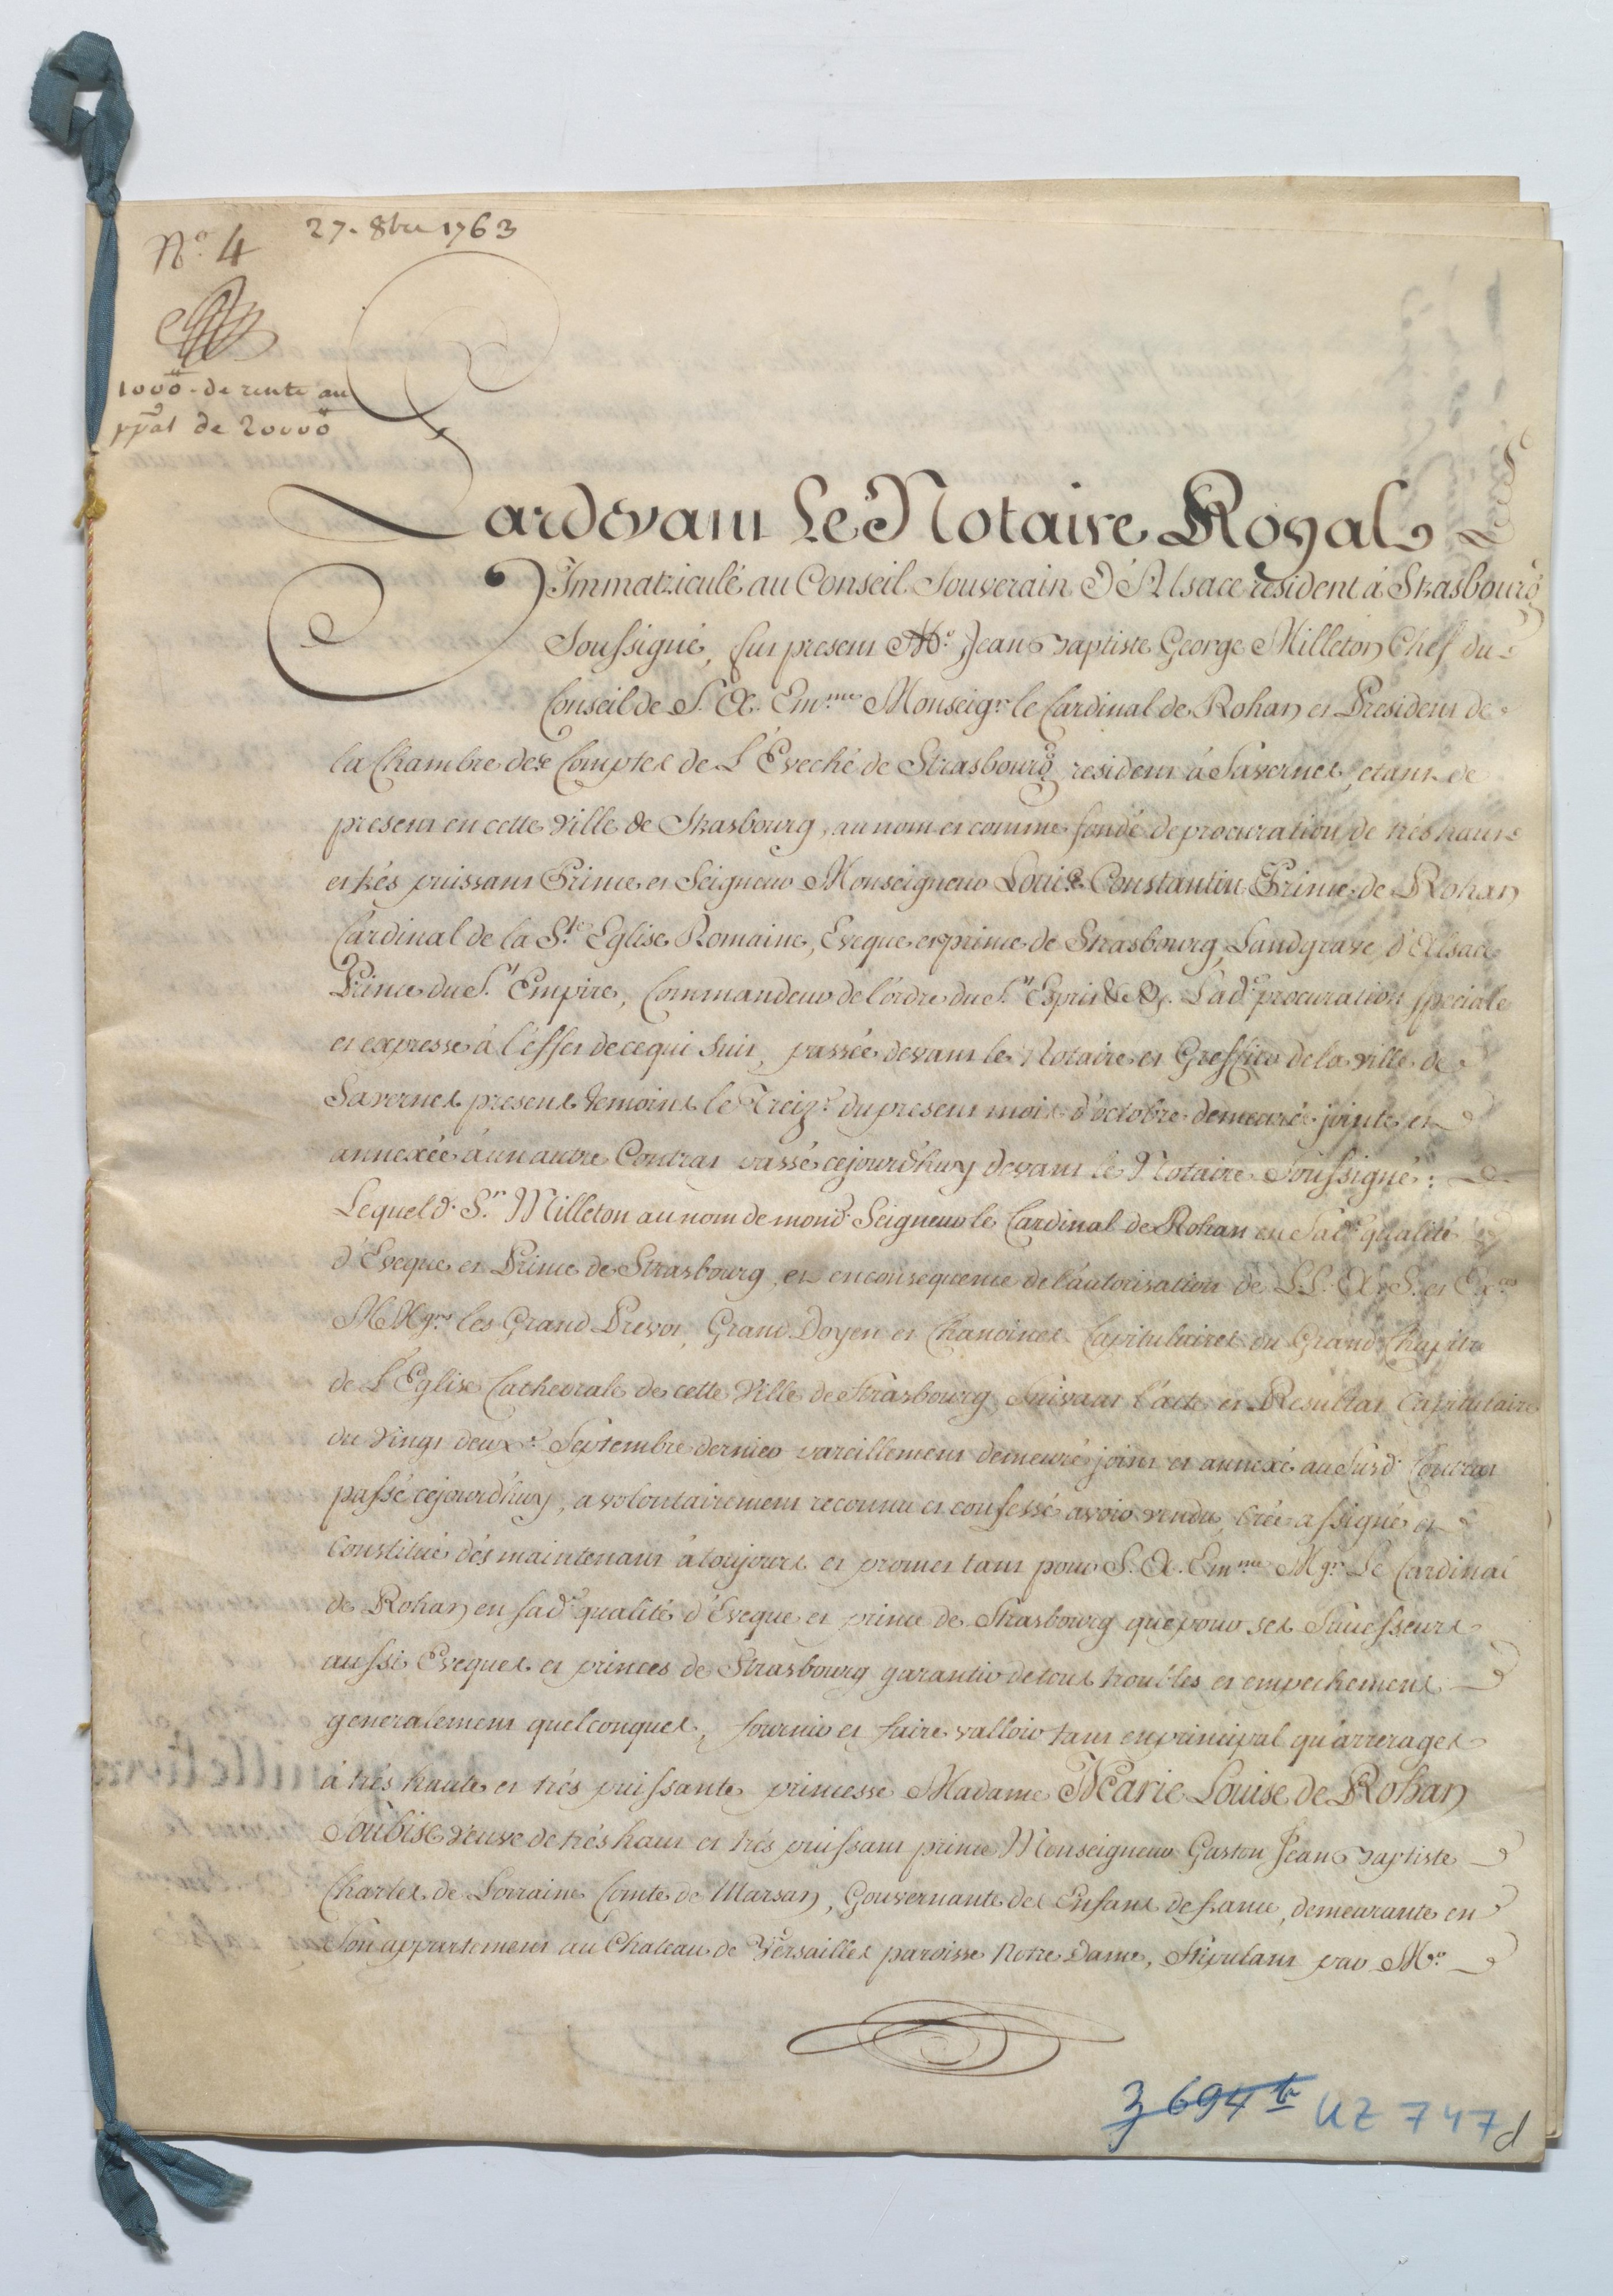 N.º 4
27. 8bre 1763
1000.tt de rente au
ppal de 20000tt
Pardevant Le Notaire Royal
Immatriculé au Conseil Souverain D'Alsace resident á Strasbourg
Soussigné, fut present M.e Jean Baptiste George Milleton Chef du
Conseil de S. A. Em.me Monseigr le Cardinal de Rohan et President de
la Chambre des Comptes de L'Eveché de Strasbourg resident á Savernes, etant de
present en cette Ville de Strasbourg, au nom et comme fondé de procuration de trés haut
et trés puissant Prince et Seigneur Monseigneur Louis Constantin Prince de Rohan
Cardinal de la S.te Eglise Romaine, Eveque et prince de Strasbourg, Landgrave d'Alsace
Prince du S.t Empire, Commandeur de l'ordre du S.t Esprit &c &c. Lad.e procuration speciale
et expresse á l'effet de ce qui suit, passée devant le Notaire et Greffier de la ville de
Savernes presens temoins le Treiz.e du present mois d'octobre demeurée jointe et
annexée á un autre Contrat passé cejourd'huy devant le Notaire Soussigné:
Lequel d. S.r Milleton au nom de mond. Seigneur le Cardinal de Rohan en sad.e qualité
d'Eveque et Prince de Strasbourg, et en consequence de l'autorisation de LL. A. S. et Ex.ces
MMgrs les Grand Prevot, Grand Doyen et Chanoines Capitulaires du Grand Chapitre
de L'Eglise Cathedrale de cette Ville de Strasbourg, suivant l'acte et Resultat Capitulaire
du Vingt deux.e Septembre dernier pareillement demeuré joint et annexé au susd. Contrat
passé cejourd'huy, a volontairement reconnu et confessé avoir vendu, créé assigné et
Constitué dés maintenant á toujours et promet tant pour S. A. Em.me Mgr. Le Cardinal
de Rohan en sad.e qualité d'Eveque et prince de Strasbourg que pour ses Successeurs
aussi Eveques et princes de Strasbourg garantir de tous troubles et empechemens
generalement quelconques, fournir et faire valloir tant en principal qu'arrerages
á trés haute et trés puissante princesse Madame Marie Louise de Rohan
Soubise veuve de trés haut et trés puissant prince Monseigneur Gaston Jean Baptiste
Charles de Lorraine Comte de Marsan, Gouvernante des Enfans de france, demeurante en
son appartement au Chateau de Versailles paroisse Notre Dame, Stipulant par M.e
UZ 747d